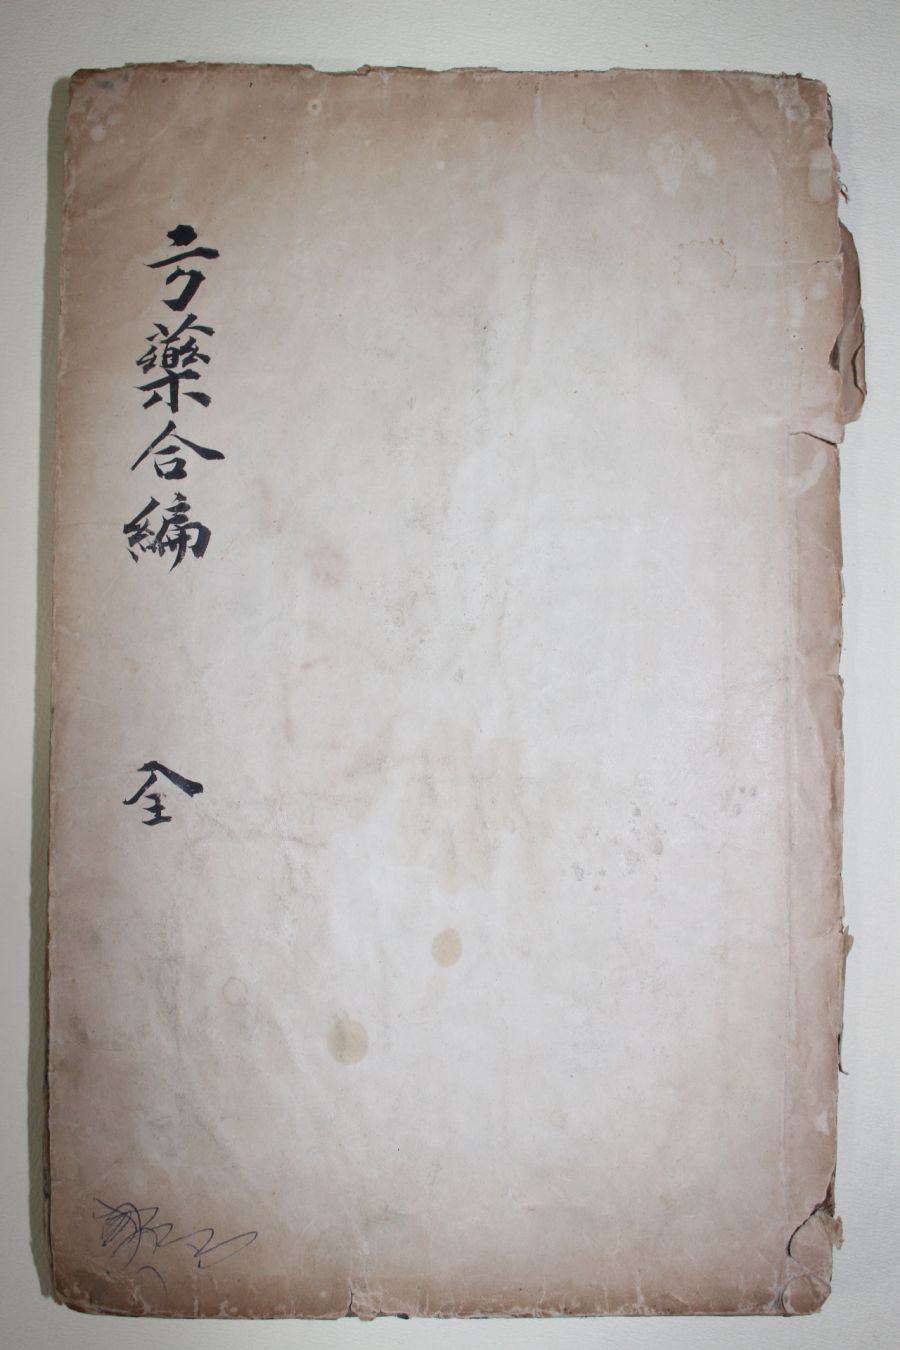 方藥合編 全